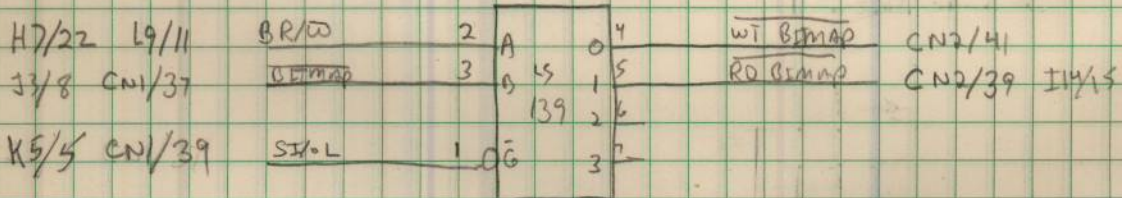 H7/22 L9/11 BR/W̅ 2 A 0 4 W̅T̅ B̅I̅T̅M̅A̅P̅ CN2/41
J3/8 CN1/37 B̅I̅T̅M̅A̅P̅ 3 B LS 1 5 R̅D̅ B̅I̅T̅M̅A̅P̅ CN2/39 I14/15
139 2 6
K5/5 CN1/39 1 G̅ 3 7